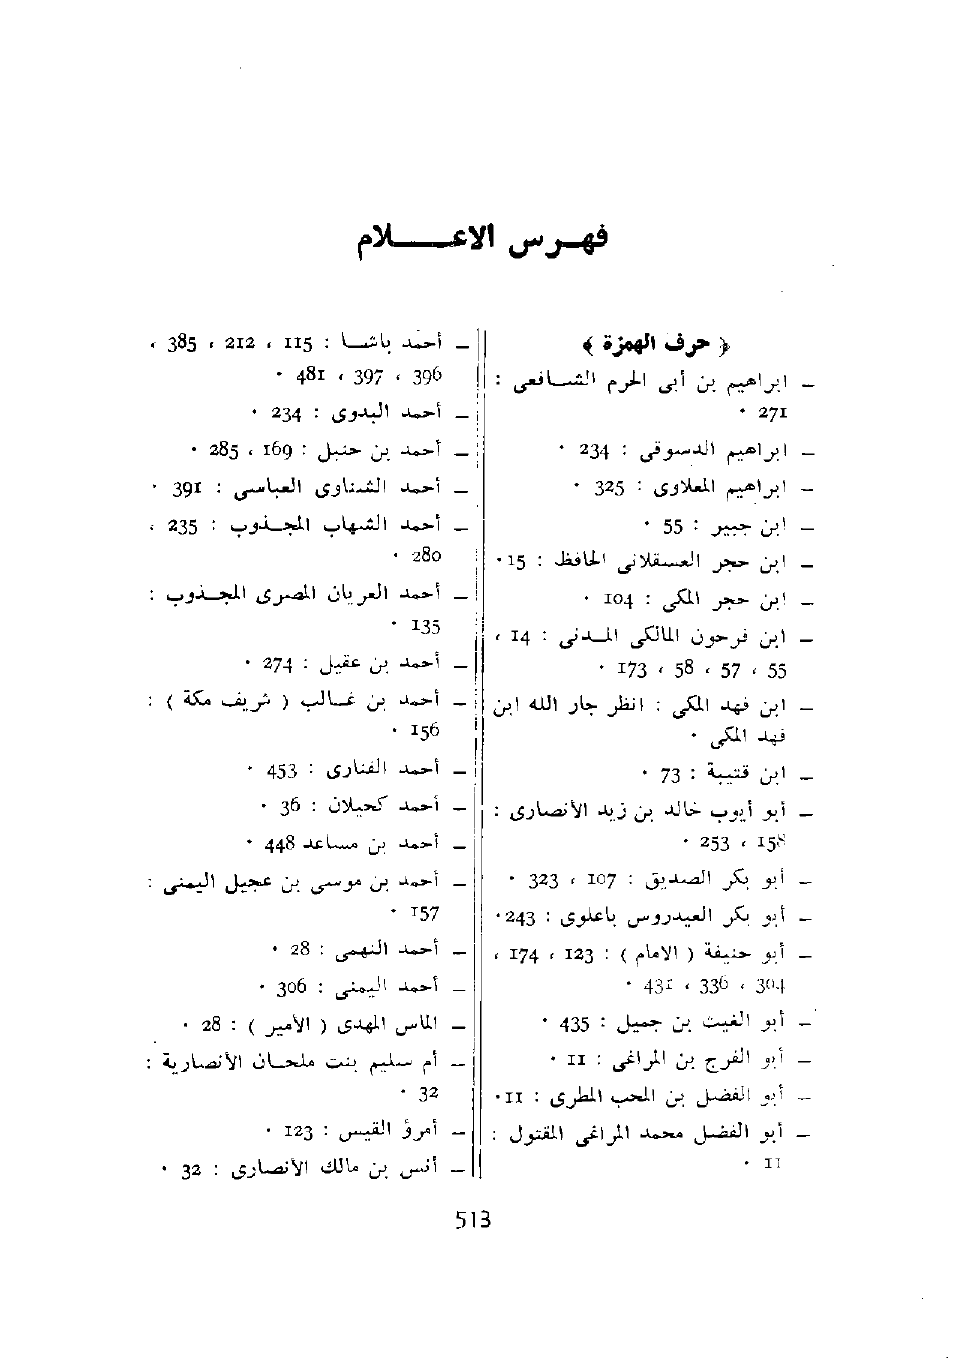 فهـرس الاعـــلام
﴿ حرف الهمزة ﴾
– ابراهيم بن أبى الحرم الشـافعى :
271 ٠
– ابراهيم الدسوقى : 234 ٠
– ابراهيم المعلاوى : 325 ٠
– ابن جبير : 55 ٠
– ابن حجر العسقلانى الحافظ : 15٠
– ابن حجر المكى : 104 ٠
– ابن فرحون المالكى المـدنى : 14 ،
55 ، 57 ، 58 ، 173 ٠
– ابن فهد المكى : انظر جار الله ابن
فهد المكى ٠
– ابن قتيبة : 73 ٠
– أبو أيوب خالد بن زيد الأنصارى :
158 ، 253 ٠
– أبو بكر الصديق : 107 ، 323 ٠
– أبو بكر العيدروس باعلوى : 243٠
– أبو حنيفة ( الامام ) : 123 ، 174 ،
304 ، 336 ، 431 ٠
– أبو الغيث بن جميل : 435 ٠
– أبو الفرج بن المراغى : 11 ٠
– أبو الفضل بن المحب المطرى : 11٠
– أبو الفضل محمد المراغى المقتول :
11 ٠
– أحمد باشـا : 115 ، 212 ، 385 ،
396 ، 397 ، 481 ٠
– أحمد البدوى : 234 ٠
– أحمد بن حنبل : 169 ، 285 ٠
– أحمد الشناوى العباسى : 391 ٠
– أحمد الشهاب المجـذوب : 235 ،
280 ٠
– أحمد العريان المصرى المجـذوب :
135 ٠
– أحمد بن عقيل : 274 ٠
– أحمد بن غـالب ( شريف مكة ) :
156 ٠
– أحمد الفنارى : 453 ٠
– أحمد كحيلان : 36 ٠
– أحمد بن مساعد 448 ٠
– أحمد بن موسى بن عجيل اليمنى :
157 ٠
– أحمد النهمى : 28 ٠
– أحمد اليمنى : 306 ٠
– الماس المهدى ( الأمير ) : 28 ٠
– أم سليم بنت ملحـان الأنصارية :
32 ٠
– أمرؤ القيس : 123 ٠
– أنس بن مالك الأنصارى : 32 ٠
513